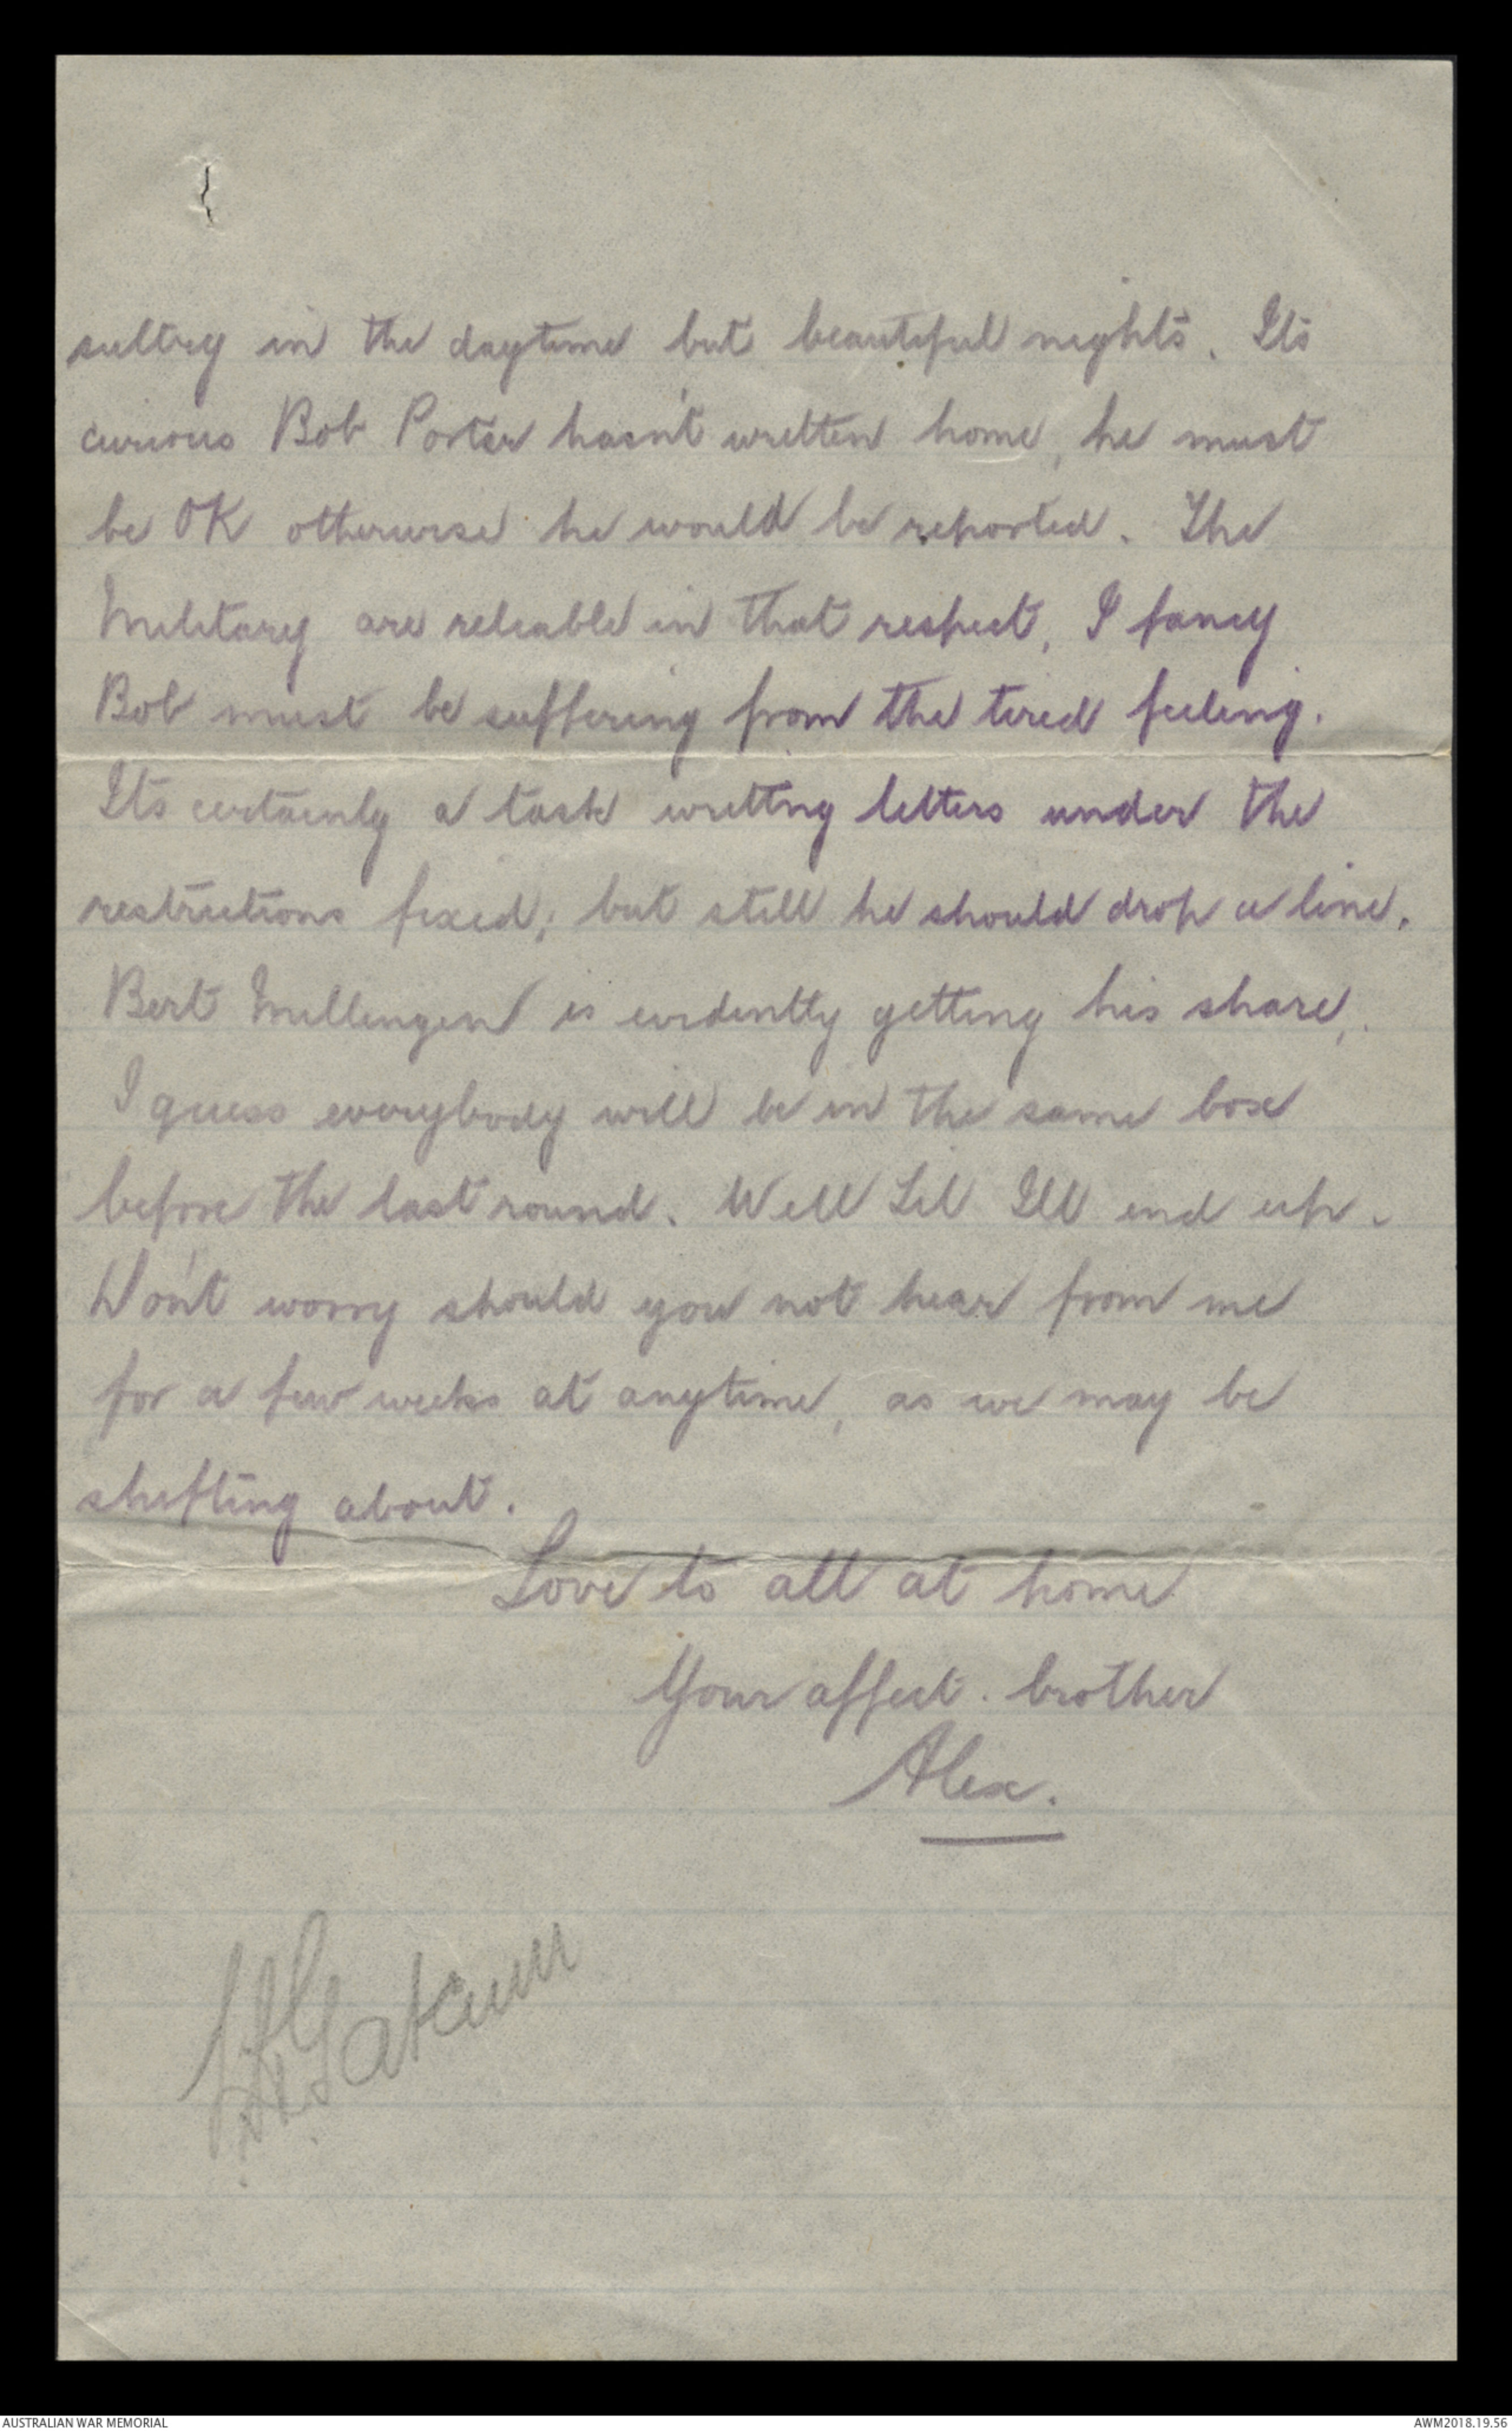 sultry in the daytime but beautiful nights. Its
curious Bob Porter hasn't written home, he must
be OK otherwise he would be reported. The
Military are reliable in that respect, I fancy
Bob must be suffering from the tired feeling.
Its certainly a task writing letters under the
restrictions fixed; but still he should drop a line.
Bert Millingen is evidently getting his share,
I guess everybody will be in the same box
before the last round. Well Lil Ill end up.
Don't worry should you not hear from me
for a few weeks at anytime, as we may be
shifting about.
Love to all at home
Your affect. brother
Alex.
AUSTRALIAN WAR MEMORIAL
AWM2018.19.56